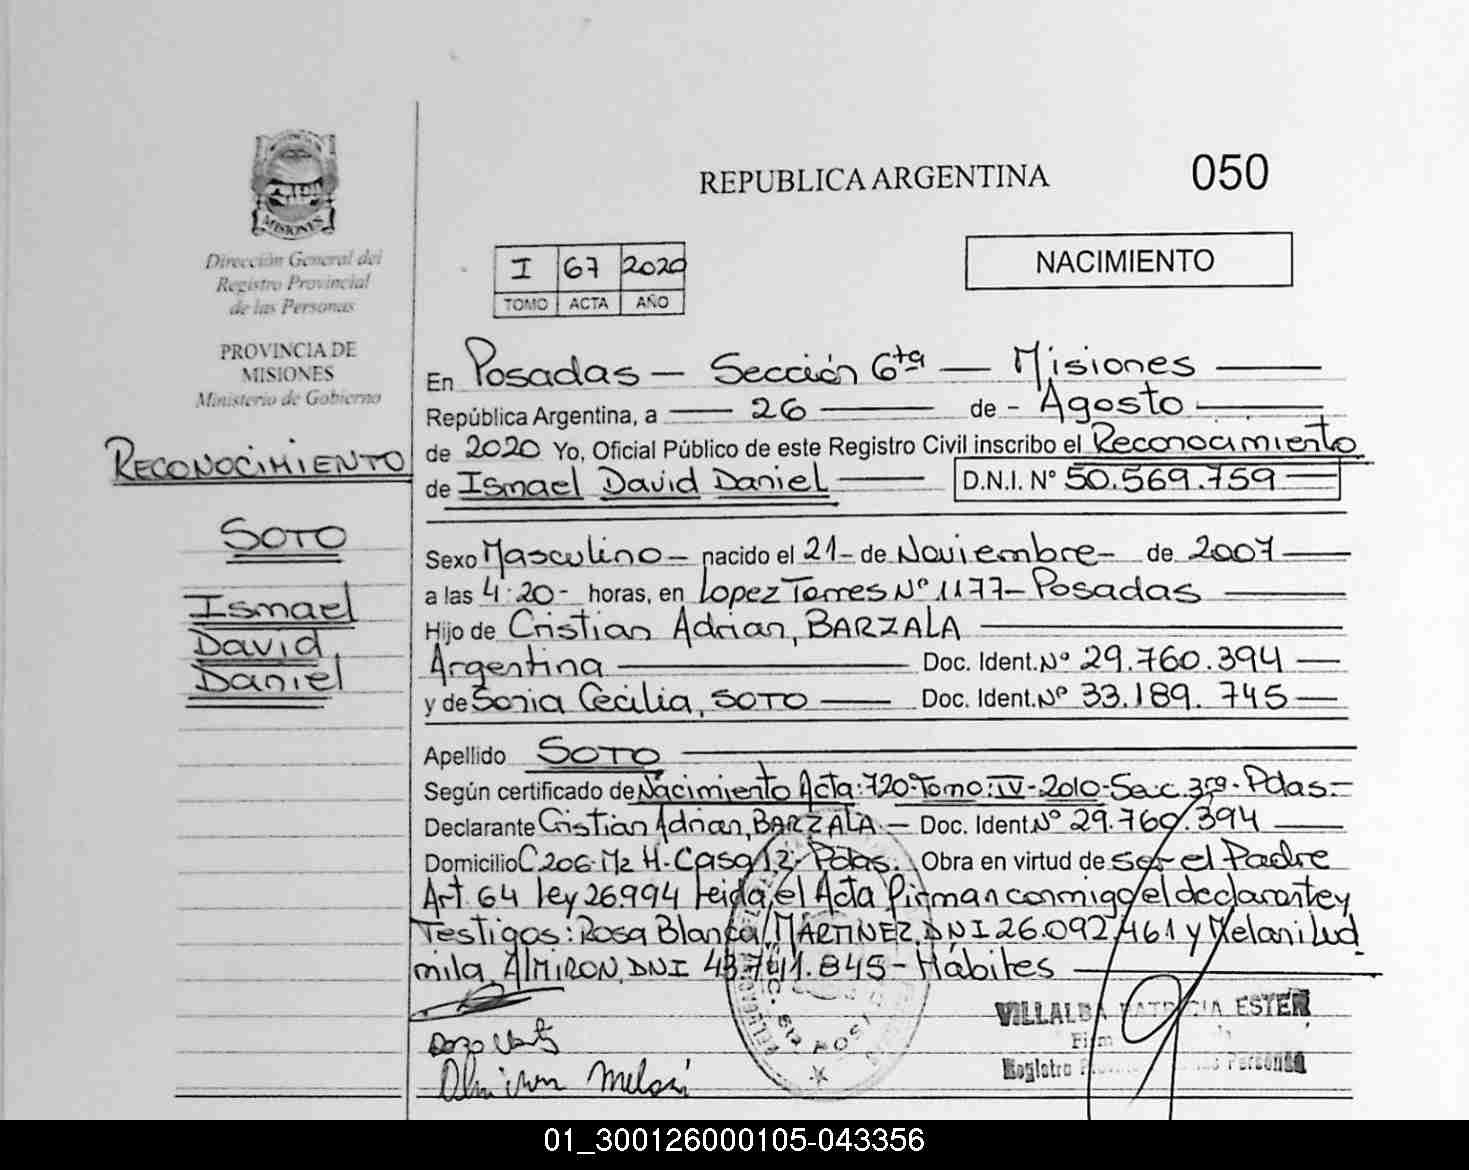 MISIONES
Dirección General del
Registro Provincial
de las Personas
PROVINCIA DE
MISIONES
Ministerio de Gobierno
RECONOCIMIENTO
SOTO
Ismael
David
Daniel
REPUBLICA ARGENTINA
050
I 67 2020
TOMO ACTA AÑO
NACIMIENTO
En Posadas - Sección 6ta - Misiones
República Argentina, a 26 de - Agosto
de 2020 Yo, Oficial Público de este Registro Civil inscribo el Reconocimiento
de Ismael David Daniel D.N.I. N° 50.569.759
Sexo Masculino - nacido el 21 - de Noviembre - de 2007
a las 4:20 - horas, en Lopez Torres N° 1177 - Posadas
Hijo de Cristian Adrian, BARZALA
Argentina Doc. Ident. N° 29.760.394
y de Sonia Cecilia, SOTO Doc. Ident. N° 33.189.745
Apellido SOTO
Según certificado de Nacimiento Acta: 720-Tomo: IV-2010-Secc. 3ra-Pdas.-
Declarante Cristian Adrian, BARZALA - Doc. Ident N° 29.760.394
Domicilio C 206 Mz H - Casa 12 - Pdas. Obra en virtud de ser el Padre
Art. 64 Ley 26994 Leida el Acta firman conmigo el declarante y
Testigos: Rosa Blanca, MARTINEZ, DNI 26.092.461 y Melani Lud
mila ALMIRON, DNI 43.741.845 - Hábiles
VILLALBA PATRICIA ESTER
Registro Personas
Almiron Melani
01_300126000105-043356